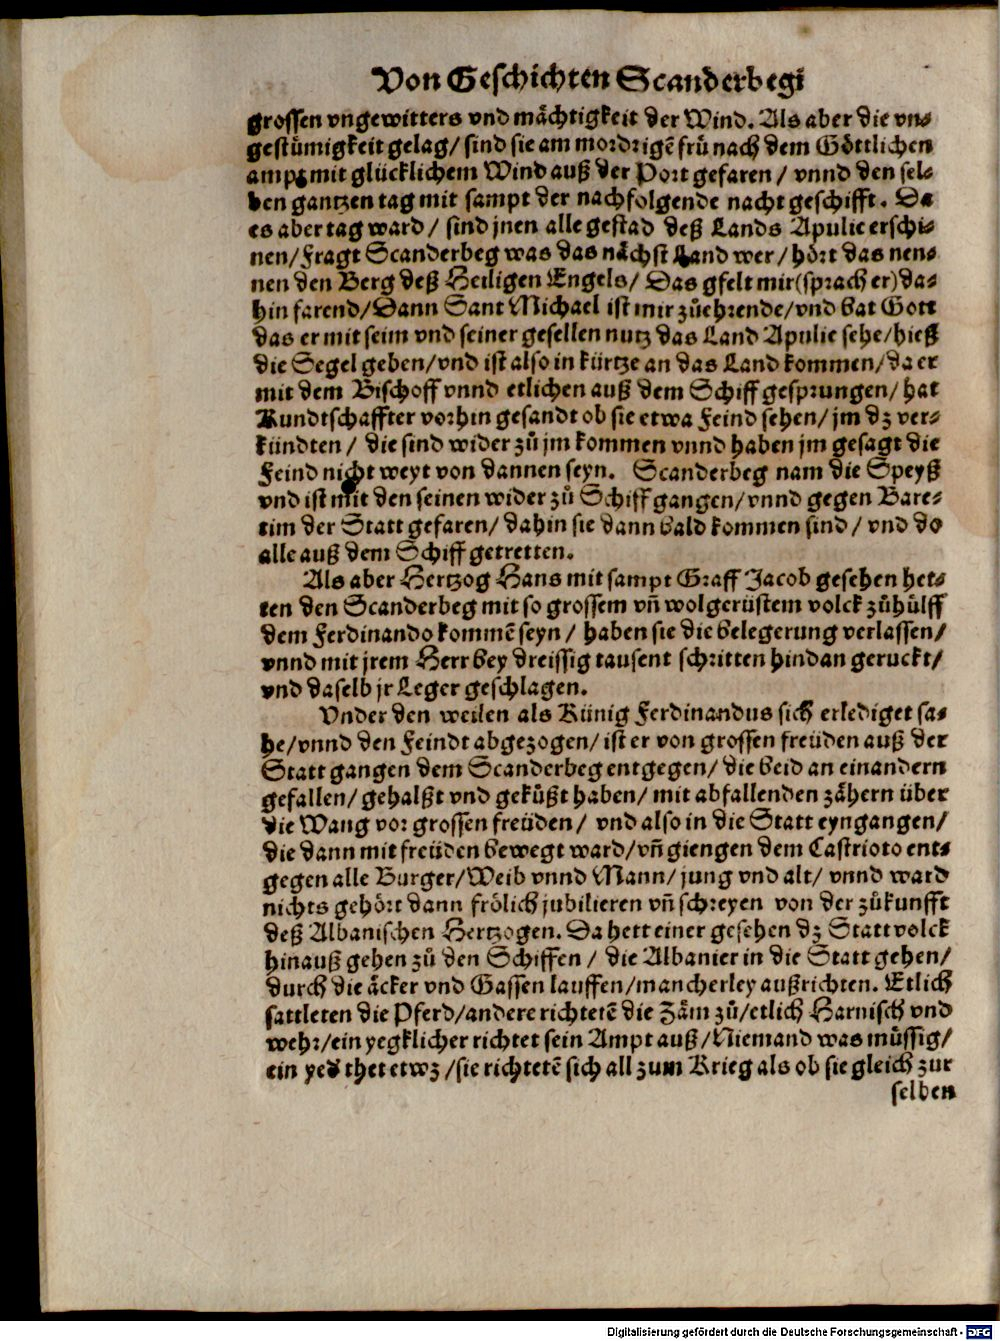 Von Geschichten Scanderbegi
grossen vngewitters vnd mächtigkeit der Wind. Als aber die vn-
gestümigkeit gelag/ sind sie am mordrigẽ frü nach dem Göttlichen
ampt mit glücklichem Wind auß der Port gefaren / vnnd den sel-
ben gantzen tag mit sampt der nachfolgende nacht geschifft. Da
es aber tag ward / sind jnen alle gestad deß Lands Apulie erschi-
nen/ fragt Scanderbeg was das nächst Land wer/ hört das nen-
nen den Berg deß Heiligen Engels/ Das gfelt mir (sprach er) da-
hin farend/ Dann Sant Michael ist mir zůehrende/ vnd bat Gott
das er mit seim vnd seiner gesellen nutz das Land Apulie sehe/ hieß
die Segel geben/ vnd ist also in kürtze an das Land kommen/ da er
mit dem Bischoff vnnd etlichen auß dem Schiff gesprungen/ hat
Kundtschaffter vorhin gesandt ob sie etwa Feind sehen/ jm dz ver-
kündten / die sind wider zů jm kommen vnnd haben jm gesagt die
Feind nicht weyt von dannen seyn. Scanderbeg nam die Speyß
vnd ist mit den seinen wider zů Schiff gangen/ vnnd gegen Bare-
tim der Statt gefaren/ dahin sie dann bald kommen sind / vnd do
alle auß dem Schiff getretten.
Als aber Hertzog Hans mit sampt Graff Jacob gesehen het-
ten den Scanderbeg mit so grossem vñ wolgerüstem volck zůhülff
dem Ferdinando kommẽ seyn / haben sie die belegerung verlassen/
vnnd mit jrem Herr bey dreissig tausent schritten hindan geruckt/
vnd daselb jr Leger geschlagen.
Vnder den weilen als Künig Ferdinandus sich erlediget sa-
he/ vnnd den Feindt abgezogen/ ist er von grossen freüden auß der
Statt gangen dem Scanderbeg entgegen/ die beid an einandern
gefallen/ gehalßt vnd geküßt haben/ mit abfallenden zähern über
die Wang vor grossen freüden / vnd also in die Statt eyngangen/
die dann mit freüden bewegt ward/ vñ giengen dem Castrioto ent-
gegen alle Burger/ Weib vnnd Mann/ jung vnd alt/ vnnd ward
nichts gehört dann frölich jubilieren vñ schreyen von der zůkunfft
deß Albanischen Hertzogen. Da hett einer gesehen dz Stattvolck
hinauß gehen zů den Schiffen / die Albanier in die Statt gehen/
durch die äcker vnd Gassen lauffen/ mancherley außrichten. Etlich
sattleten die Pferd/ andere richtetẽ die Zäm zů/ etlich Harnisch vnd
wehr/ ein yegklicher richtet sein Ampt auß/ Niemand was müssig/
ein yed thet etwz / sie richtetẽ sich all zum Krieg als ob sie gleich zur
selben
Digitalisierung gefördert durch die Deutsche Forschungsgemeinschaft - DFG